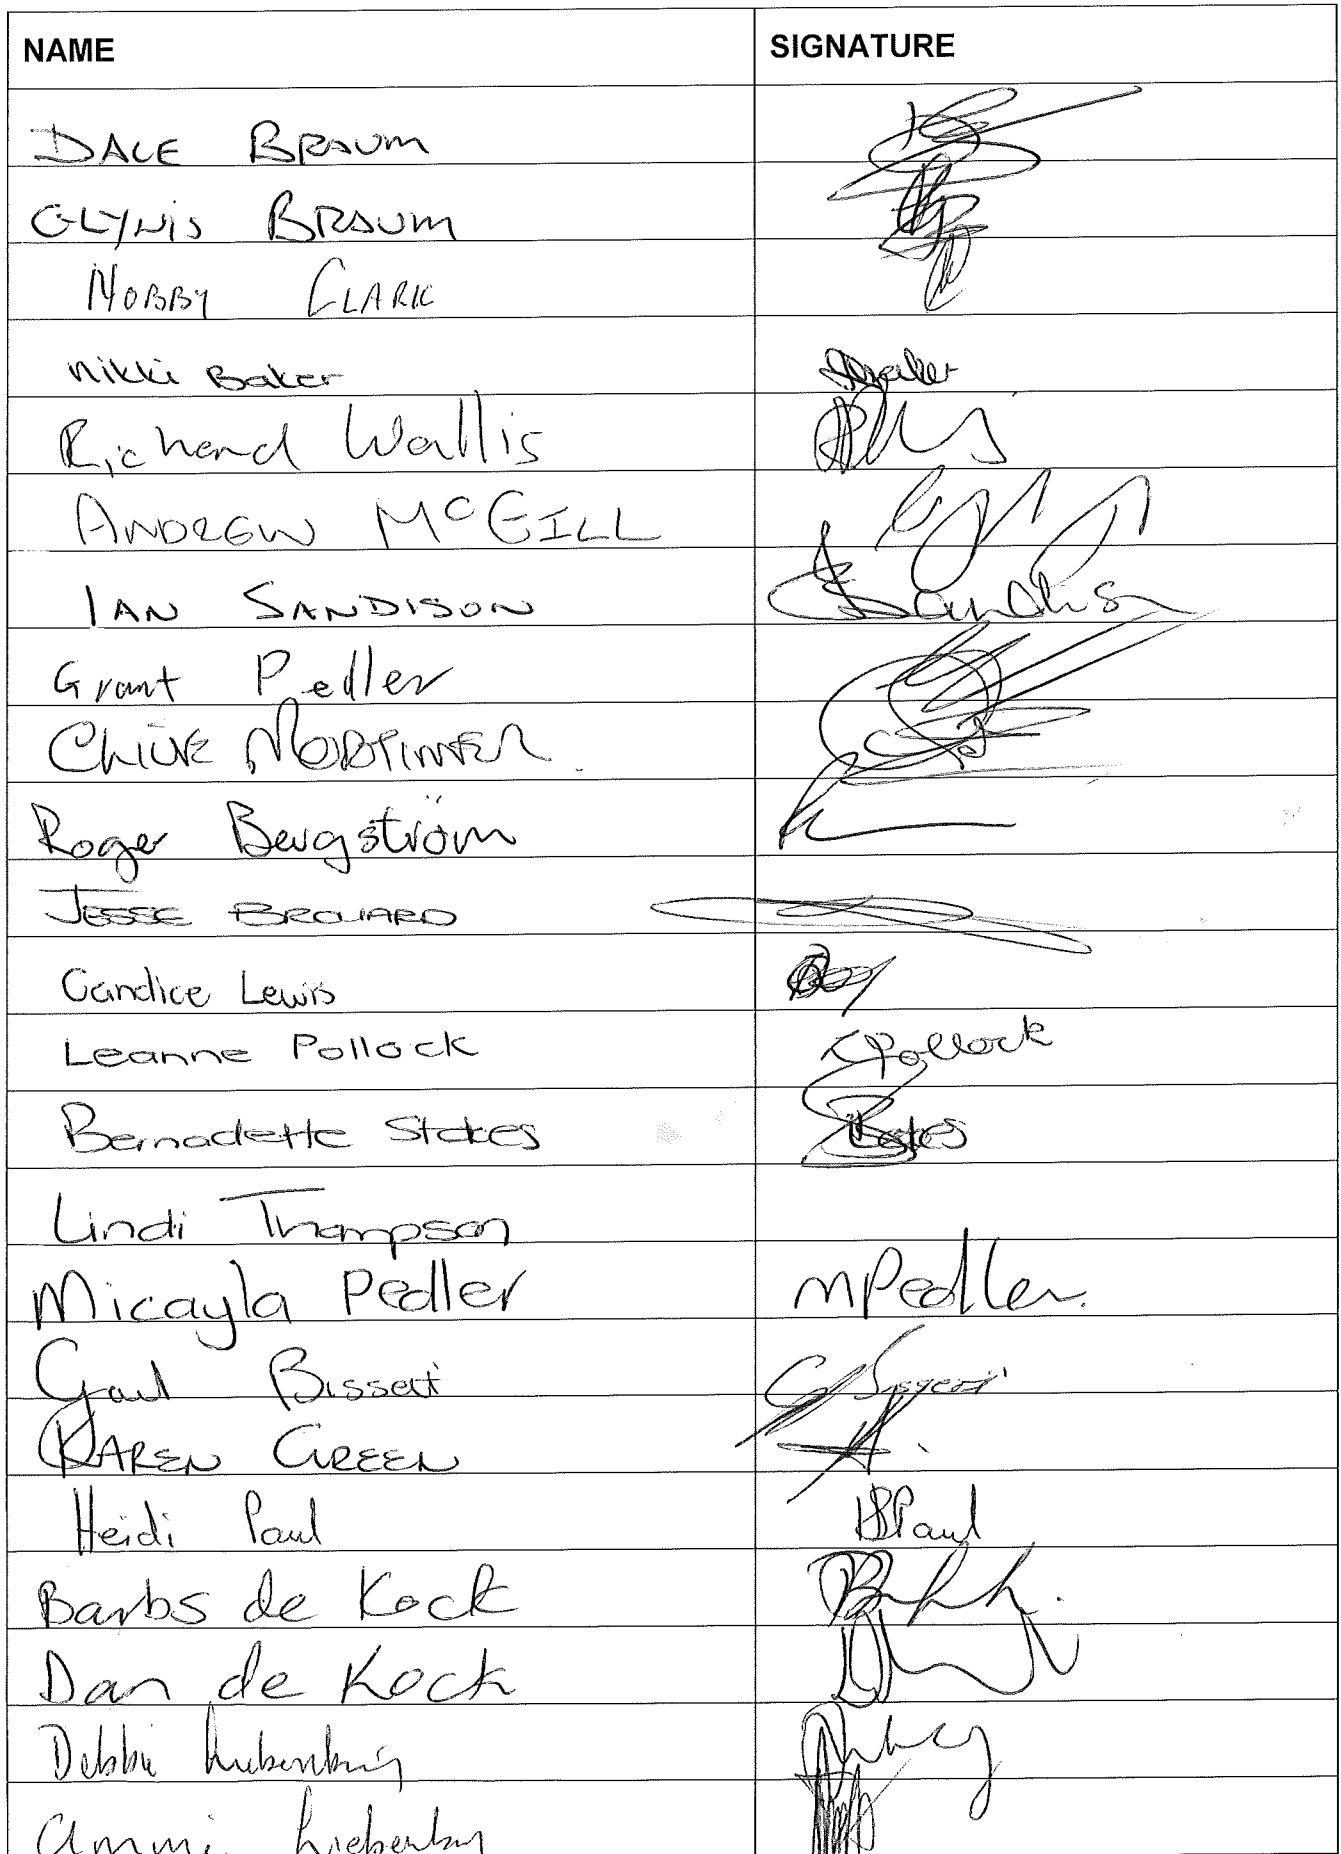 NAME SIGNATURE
DALE BRAUM
GLYNIS BRAUM
NOBBY CLARK
Nikki Baker
Richard Wallis
ANDREW McGILL
IAN SANDISON Sandison
Grant Pedler
MORTIMER
Roger Bergström
JESSE BROUARD
Candice Lewis
Leanne Pollock LPollock
Bernadette Stokes Stokes
Lindi Thompson
Micayla Pedler MPedler.
Gail Bissett
KAREN GREEN
Heidi Paul HPaul
Barbs de Kock
Dan de Kock
Debbie Liebenberg
Liebenberg